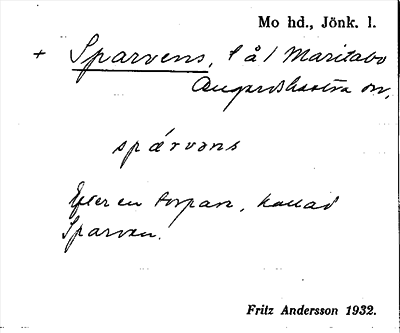 Mo hd., Jönk. l.
+ Sparvens, l å l Maritabo
Angerdshestra sn,
spárvans
Efter en torpare, kallad
Sparven.
Fritz Andersson 1932.